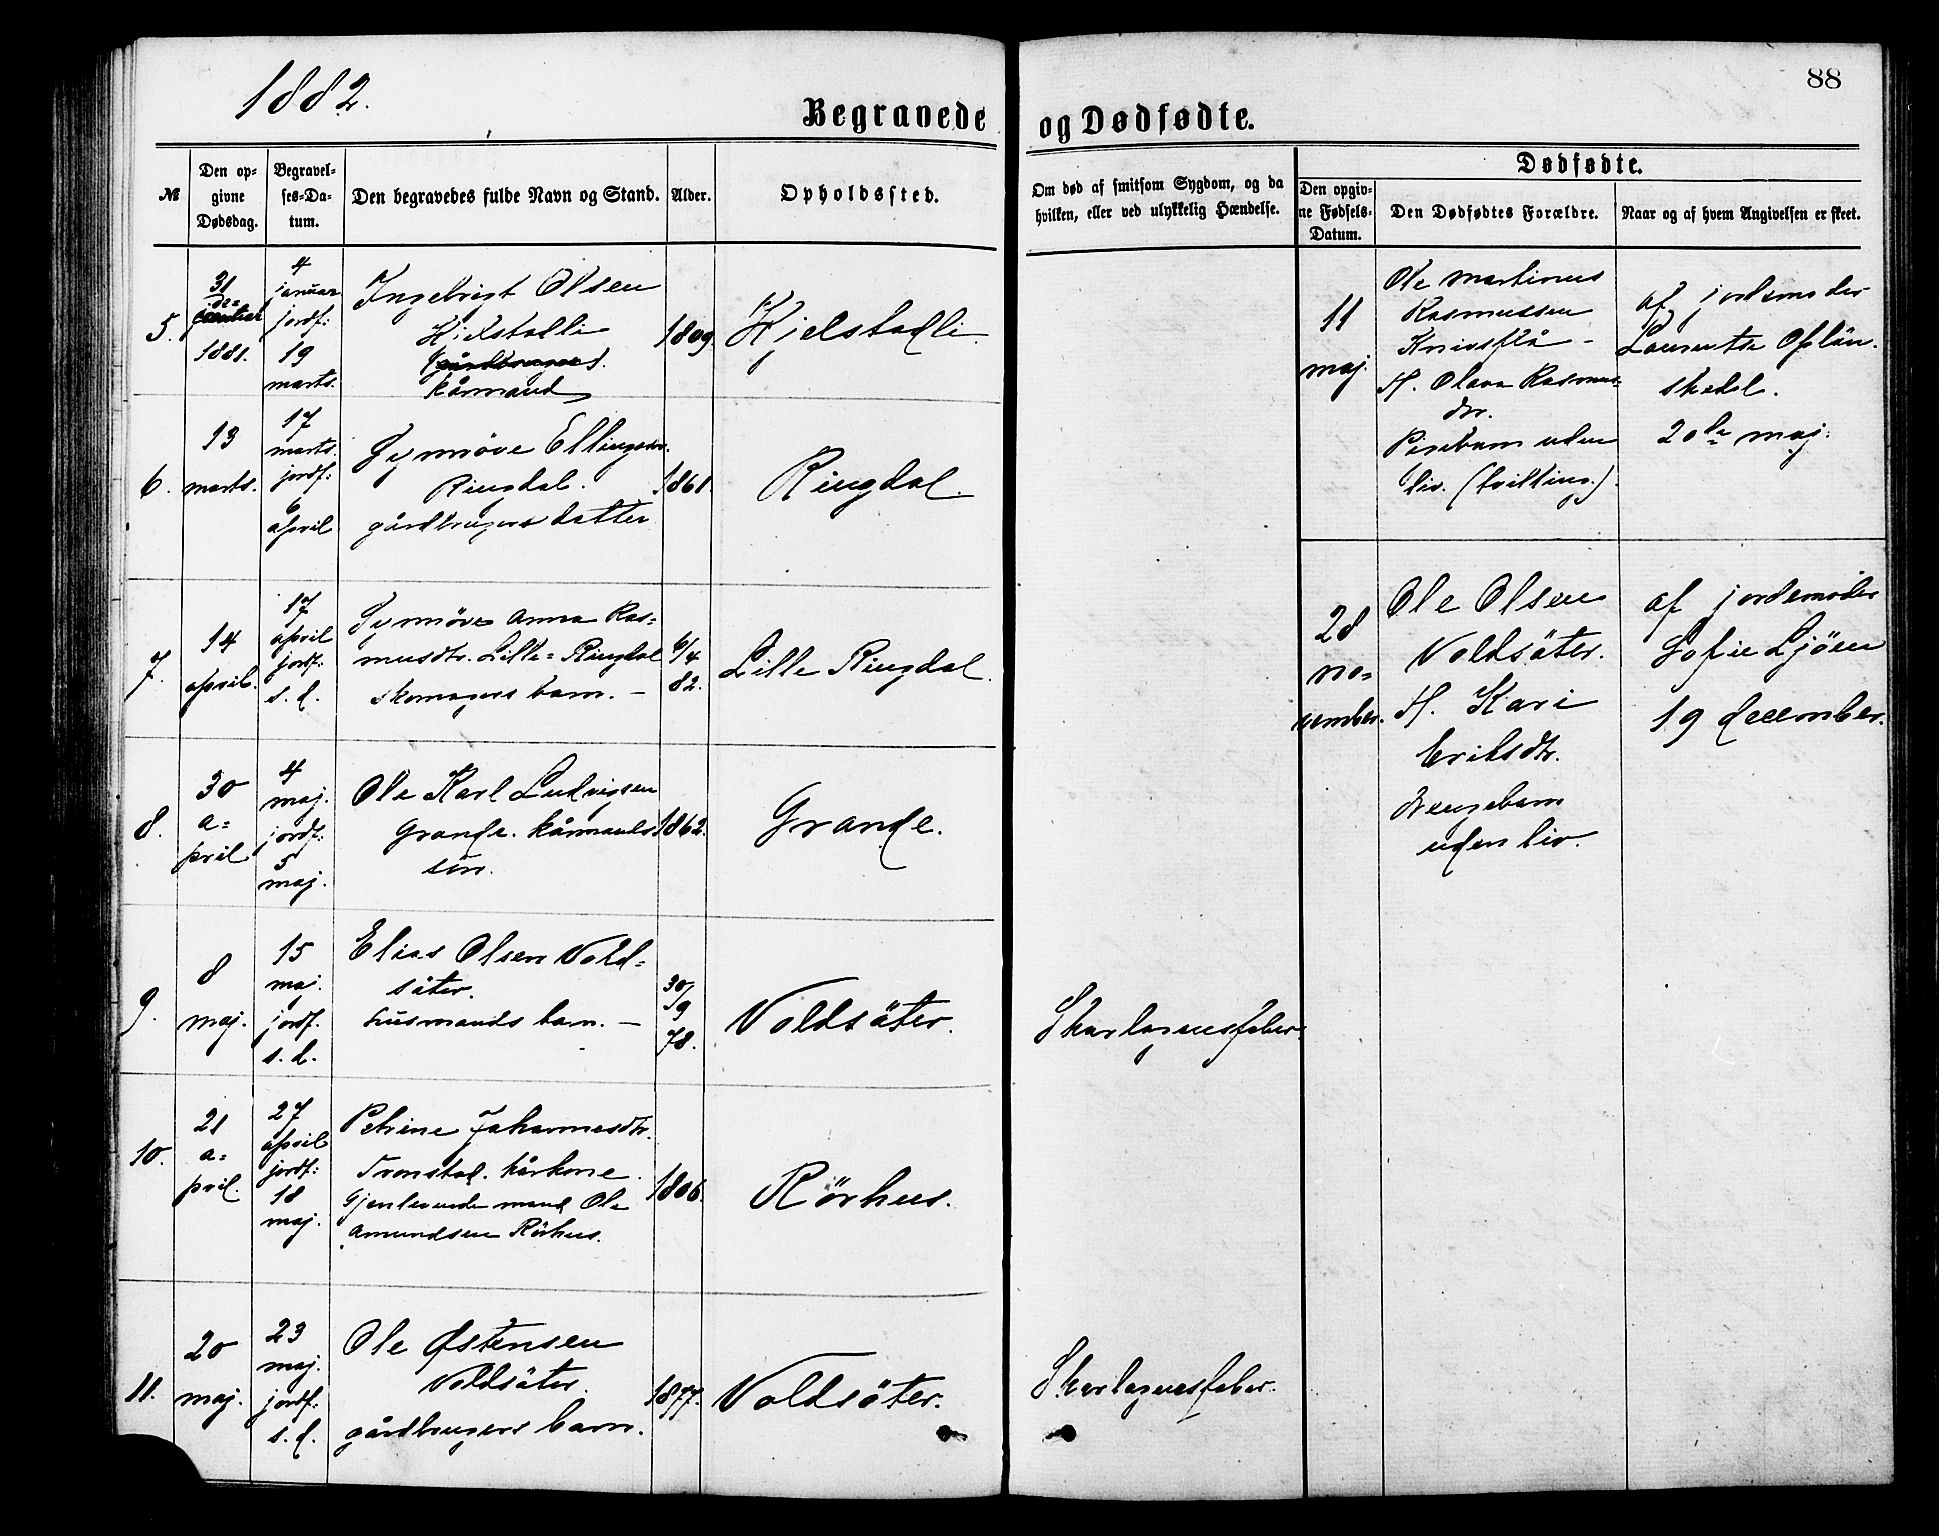 1882.
88
Begravede og Dødfødte.
№
Den op-
givne
Dødsdag.
Begravel-
ses-Da-
tum.
Den begravedes fulde Navn og Stand.
Alder.
Opholdssted.
Om død af smitsom Sygdom, og da
hvilken, eller ved ulykkelig Hændelse.
Dødfødte.
Den opgiv-
ne Fødsels-
Datum.
Den Dødfødtes Forældre.
Naar og af hvem Angivelsen er skeet.
5.
31
de=
1881.
4
januar
jordf:
19
marts.
Ingebrigt Olsen
Kjelstadli
kårmand
1809.
Kjelstadli.
6.
13
marts.
17
marts.
jordf:
6
april
Synnöve Ellingsdtr.
Ringdal.
gårdbrugers datter
1861.
Ringdal.
7.
14
april.
17
april
jordf:
s. d.
Synnöve Anna Ras=
musdtr. Lille=Ringdal
skomagers barn. —
6/4
82.
Lille Ringdal.
8.
30
a=
pril
4
maj.
jordf:
5
maj.
Ole Karl Ludvigsen
Grande. kårmands
sön.
1862.
Grande.
9.
8
maj.
15
maj.
jordf.
s. d.
Elias Olsen Vold=
säter.
husmands barn. —
30/9
78.
Voldsäter.
Skarlagensfeber.
10.
21
a=
pril.
27
april
jordf:
18
maj.
Petrine Johannesdtr.
Tronstad. kårkone.
Gjenlevende mand Ole
Amundsen Rörhus.
1806.
Rörhus.
11.
20
maj.
23
maj.
jordf:
s. d.
Ole Østensen
Voldsäter.
gårdbrugers barn.
1877.
Voldsäter.
Skarlagensfeber.
11
maj.
Ole Martinus
Rasmussen
Knivsflå –
H. Olava Rasmus=
dtr.
Pigebarn uden
liv. (tvilling.).
af jordemoder
20de maj.
28
no=
vember.
Ole Olsen
Voldsäter.
H. Kari
Eriksdtr.
Drengebarn
uden liv.
af jordemoder
Sofie Ljöen
19 december.